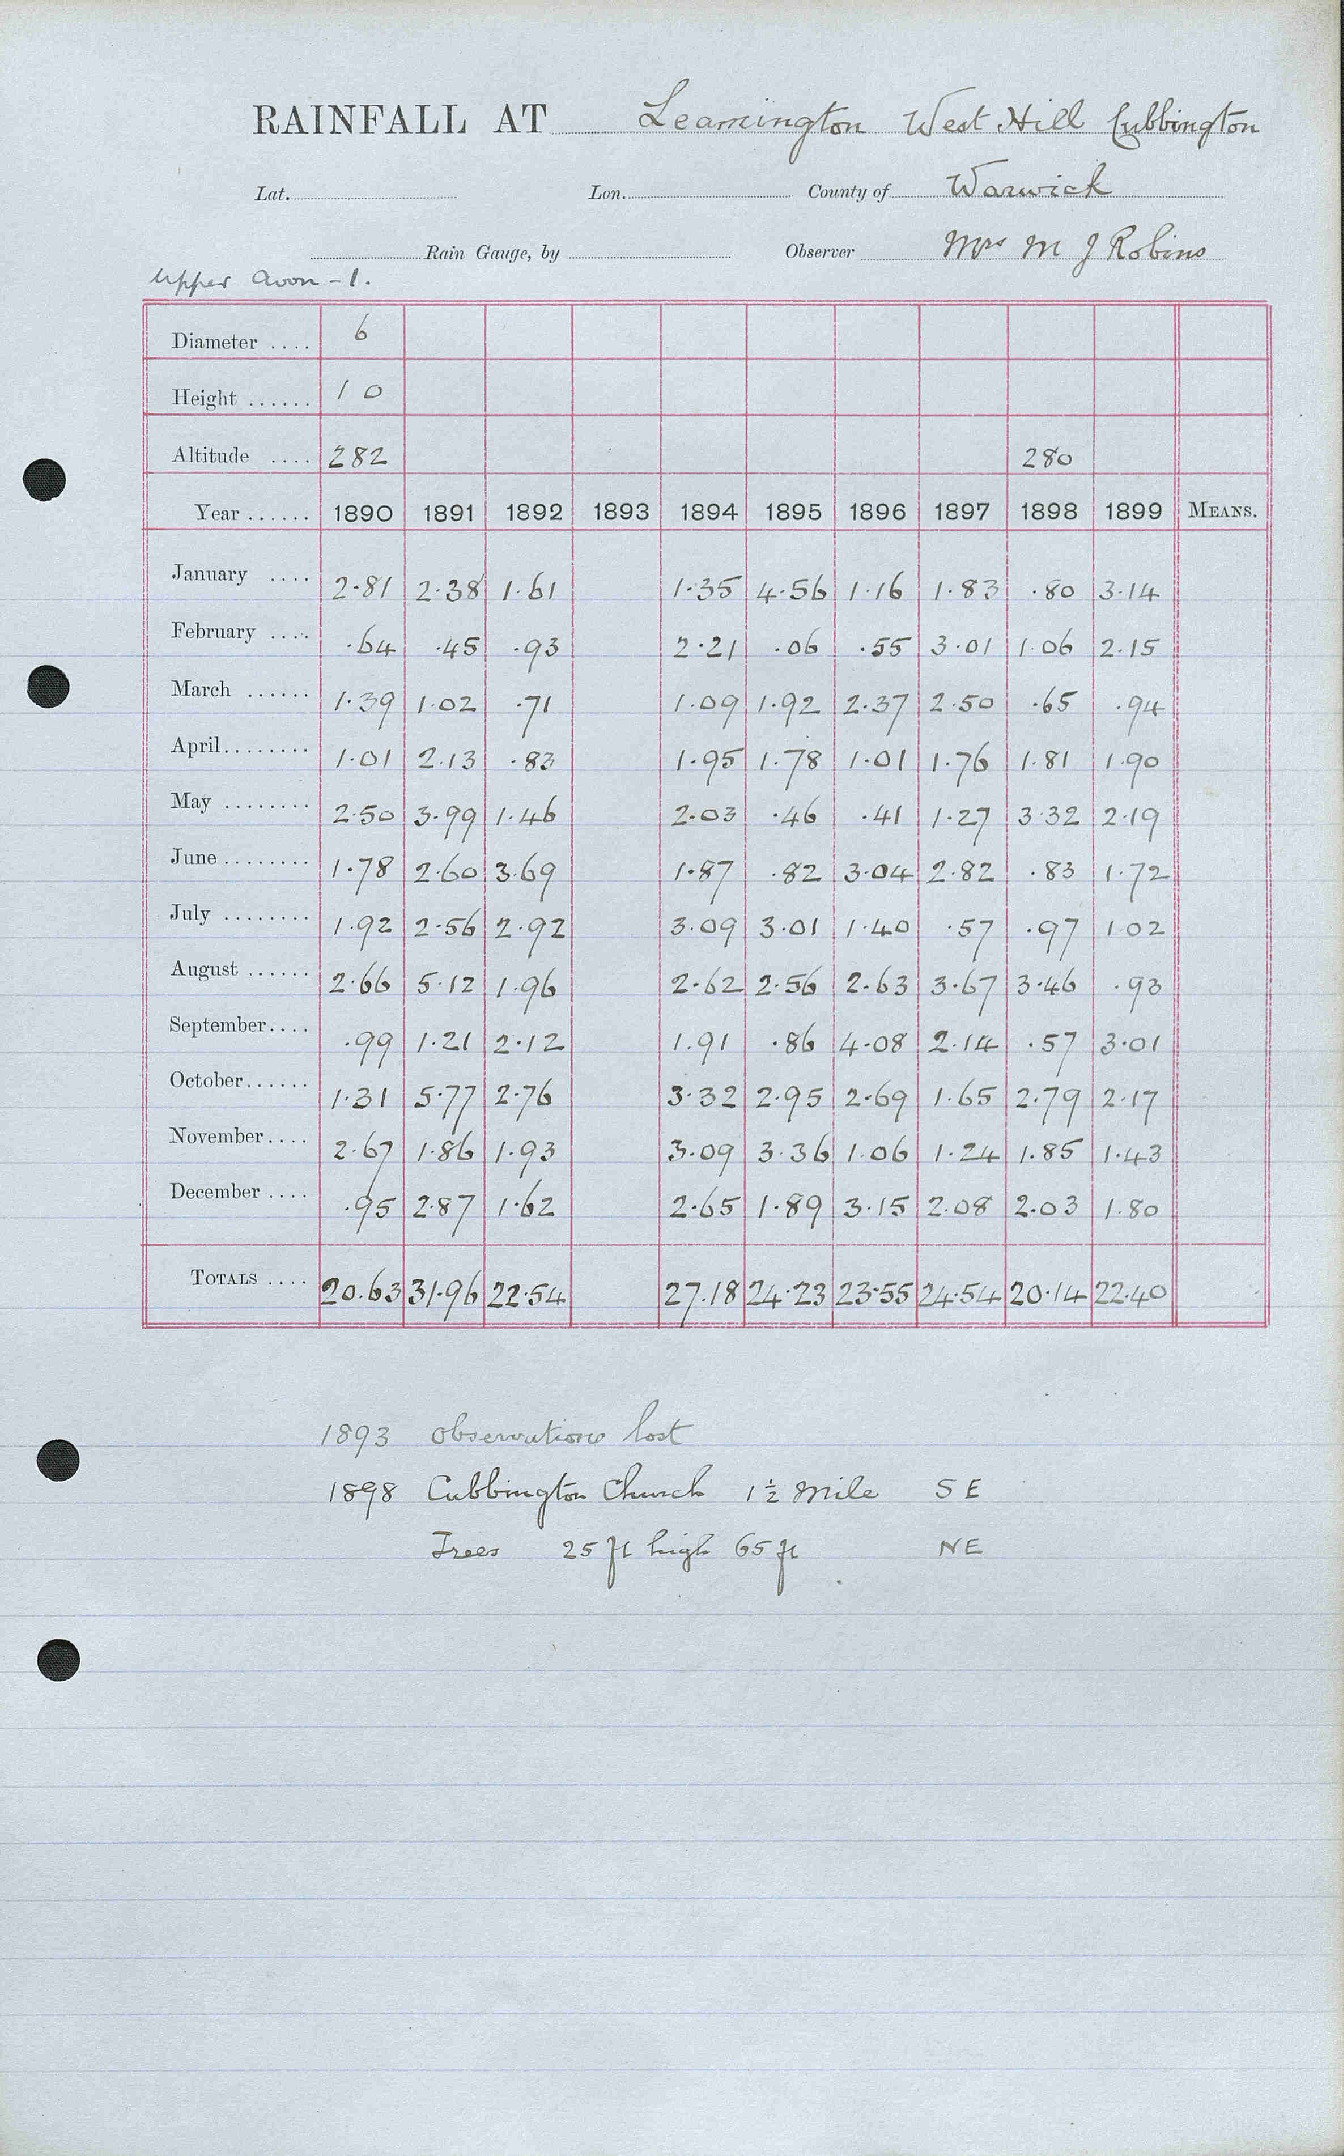 RAINFALL AT Leamington West Hill Cubbington
Lat. Lon. County of Warwick
Rain Gauge, by Observer Mrs M J Robins
Upper Avon - 1.
Diameter .... 6
Height ...... 10
Altitude .... 282 280
Year ...... 1890 1891 1892 1893 1894 1895 1896 1897 1898 1899 MEANS.
January .... 2.81 2.38 1.61 1.35 4.56 1.16 1.83 .80 3.14
February .... .64 .45 .93 2.21 .06 .55 3.01 1.06 2.15
March ...... 1.39 1.02 .71 1.09 1.92 2.37 2.50 .65 .94
April........ 1.01 2.13 .83 1.95 1.78 1.01 1.76 1.81 1.90
May ........ 2.50 3.99 1.46 2.03 .46 .41 1.27 3.32 2.19
June ........ 1.78 2.60 3.69 1.87 .82 3.04 2.82 .83 1.72
July ........ 1.92 2.56 2.92 3.09 3.01 1.40 .57 .97 1.02
August ...... 2.66 5.12 1.96 2.62 2.56 2.63 3.67 3.46 .93
September.... .99 1.21 2.12 1.91 .86 4.08 2.14 .57 3.01
October...... 1.31 5.77 2.76 3.32 2.95 2.69 1.65 2.79 2.17
November.... 2.67 1.86 1.93 3.09 3.36 1.06 1.24 1.85 1.43
December .... .95 2.87 1.62 2.65 1.89 3.15 2.08 2.03 1.80
TOTALS .... 20.63 31.96 22.54 27.18 24.23 23.55 24.54 20.14 22.40
1893 observations lost
1898 Cubbington Church 1½ mile SE
Trees 25 ft high 65 ft NE